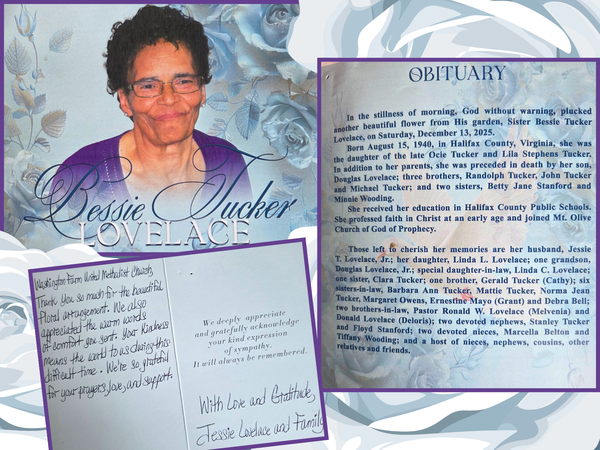 Bessie Tucker
LOVELACE
OBITUARY
In the stillness of morning, God without warning, plucked
another beautiful flower from His garden, Sister Bessie Tucker
Lovelace, on Saturday, December 13, 2025.
Born August 15, 1940, in Halifax County, Virginia, she was
the daughter of the late Ocie Tucker and Lila Stephens Tucker.
In addition to her parents, she was preceded in death by her son,
Douglas Lovelace; three brothers, Randolph Tucker, John Tucker
and Michael Tucker; and two sisters, Betty Jane Stanford and
Minnie Wooding.
She received her education in Halifax County Public Schools.
She professed faith in Christ at an early age and joined Mt. Olive
Church of God of Prophecy.
Those left to cherish her memories are her husband, Jessie
T. Lovelace, Jr.; her daughter, Linda L. Lovelace; one grandson,
Douglas Lovelace, Jr.; special daughter-in-law, Linda C. Lovelace;
one sister, Clara Tucker; one brother, Gerald Tucker (Cathy); six
sisters-in-law, Barbara Ann Tucker, Mattie Tucker, Norma Jean
Tucker, Margaret Owens, Ernestine Mayo (Grant) and Debra Bell;
two brothers-in-law, Pastor Ronald W. Lovelace (Melvenia) and
Donald Lovelace (Deloris); two devoted nephews, Stanley Tucker
and Floyd Stanford; two devoted nieces, Marcella Belton and
Tiffany Wooding; and a host of nieces, nephews, cousins, other
relatives and friends.
Washington Farm United Methodist Church,
Thank you so much for the beautiful
floral arrangement. We also
appreciated the warm words
of comfort you sent. Your kindness
means the world to us during this
difficult time. We're so grateful
for your prayers, love, and support.
We deeply appreciate
and gratefully acknowledge
your kind expression
of sympathy.
It will always be remembered.
With Love and Gratitude,
Jessie Lovelace and Family